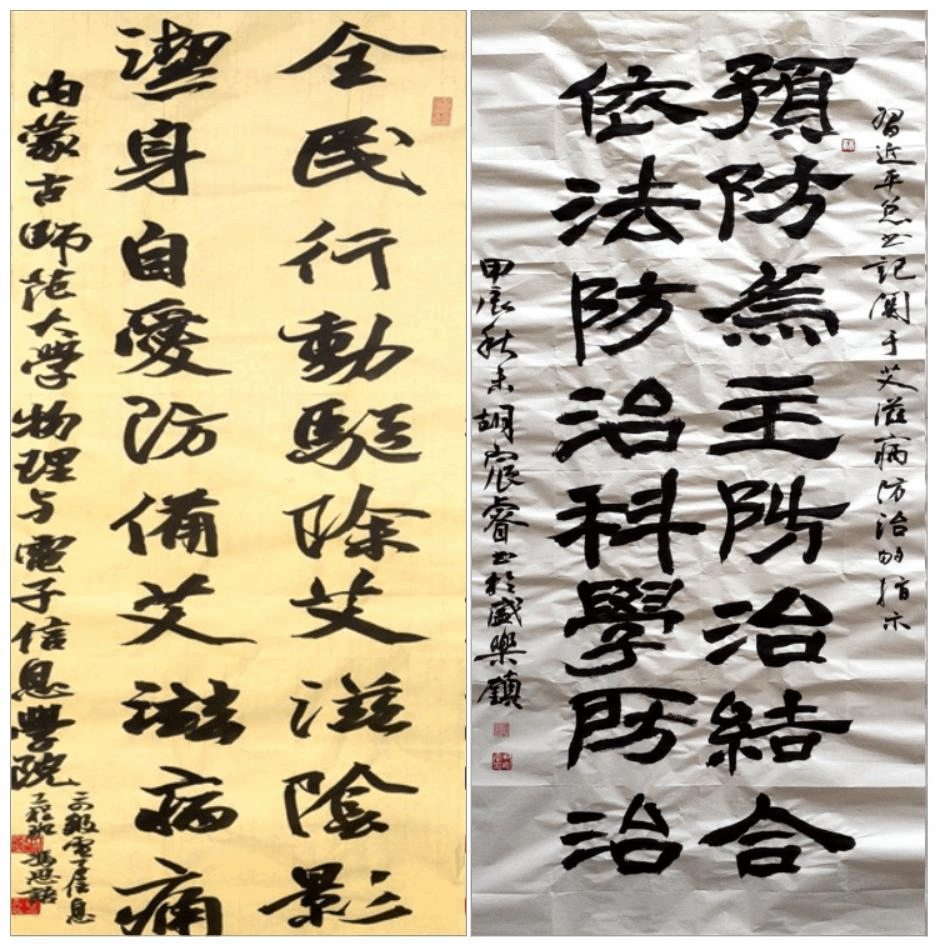 全民行動驅除艾滋陰影
潔身自愛防備艾滋病痛
内蒙古師范大学物理与電子信息學院
電子信息
習近平总书记關于艾滋病防治的指示
預防為主防治結合
依法防治科學防治
甲辰秋末胡宸睿书於盛樂鎮